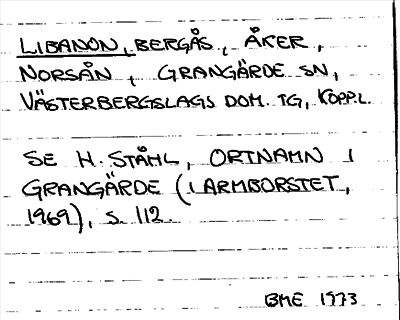 LIBANON, BERGÅS, ÅKER,
NORSÅN, GRANGÄRDE SN,
VÄSTERBERGSLAGS DOM. TG, KOPP.L.
SE H. STÅHL, ORTNAMN I
GRANGÄRDE (I ARMBORSTET,
1969), S. 112.
BME 1973